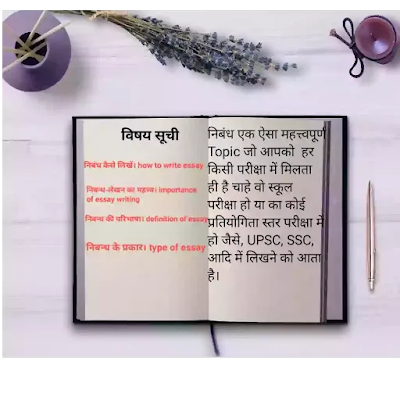 विषय सूची
निबंध कैसे लिखें। how to write essay
निबन्ध-लेखन का महत्व। importance
of essay writing
निबन्ध की परिभाषा। definition of essay
निबन्ध के प्रकार। type of essay
निबंध एक ऐसा महत्त्वपूर्ण
Topic जो आपको हर
किसी परीक्षा में मिलता
ही है चाहे वो स्कूल
परीक्षा हो या का कोई
प्रतियोगिता स्तर परीक्षा में
हो जैसे, UPSC, SSC,
आदि में लिखने को आता
है।